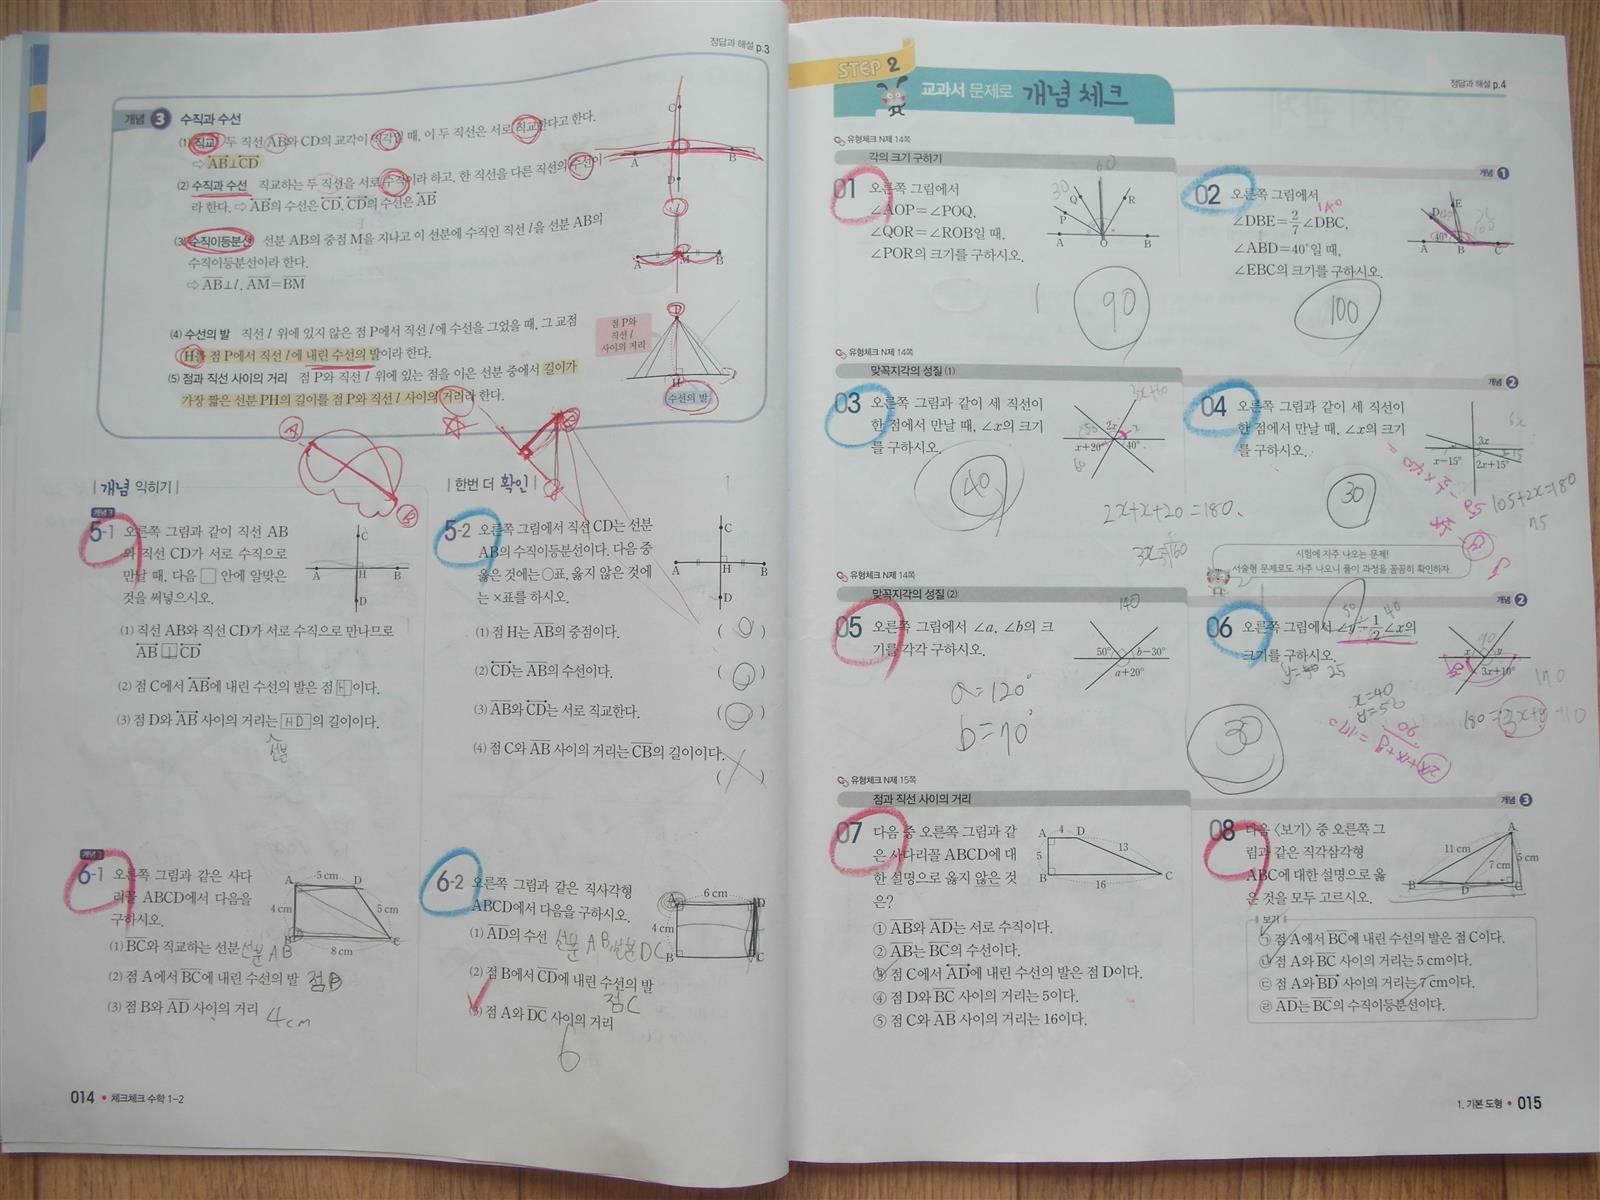 정답과 해설 p.3
개념 3 수직과 수선
(1) 직교 두 직선 AB와 CD의 교각이 직각일 때, 이 두 직선은 서로 직교한다고 한다.
⇨ AB⊥CD
(2) 수직과 수선 직교하는 두 직선을 서로 수직이라 하고, 한 직선을 다른 직선의 수선이
라 한다. ⇨ AB의 수선은 CD, CD의 수선은 AB
(3) 수직이등분선 선분 AB의 중점 M을 지나고 이 선분에 수직인 직선 l을 선분 AB의
수직이등분선이라 한다.
⇨ AB⊥l, AM=BM
(4) 수선의 발 직선 l 위에 있지 않은 점 P에서 직선 l에 수선을 그었을 때, 그 교점
H를 점 P에서 직선 l에 내린 수선의 발이라 한다.
(5) 점과 직선 사이의 거리 점 P와 직선 l 위에 있는 점을 이은 선분 중에서 길이가
가장 짧은 선분 PH의 길이를 점 P와 직선 l 사이의 거리라 한다.
C
A B
D
l
A M B
P
점 P와
직선 l
사이의 거리
H l
수선의 발
A
B
개념 익히기
개념 3
5-1 오른쪽 그림과 같이 직선 AB
와 직선 CD가 서로 수직으로
만날 때, 다음 □ 안에 알맞은
것을 써넣으시오.
C
A H B
D
(1) 직선 AB와 직선 CD가 서로 수직으로 만나므로
AB ⊥ CD
(2) 점 C에서 AB에 내린 수선의 발은 점 H이다.
(3) 점 D와 AB 사이의 거리는 HD의 길이이다.
선분
개념 3
6-1 오른쪽 그림과 같은 사다
리꼴 ABCD에서 다음을
구하시오.
A 5 cm D
4 cm 5 cm
B 8 cm C
(1) BC와 직교하는 선분 선분 AB
(2) 점 A에서 BC에 내린 수선의 발 점B
(3) 점 B와 AD 사이의 거리 4cm
한번 더 확인
5-2 오른쪽 그림에서 직선 CD는 선분
AB의 수직이등분선이다. 다음 중
옳은 것에는 ○표, 옳지 않은 것에
는 ×표를 하시오.
C
A H B
D
(1) 점 H는 AB의 중점이다. ( ○ )
(2) CD는 AB의 수선이다. ( ○ )
(3) AB와 CD는 서로 직교한다. ( ○ )
(4) 점 C와 AB 사이의 거리는 CB의 길이이다.
( × )
6-2 오른쪽 그림과 같은 직사각형
ABCD에서 다음을 구하시오.
A 6 cm D
4 cm
B C
(1) AD의 수선 선분 AB, 선분 DC
(2) 점 B에서 CD에 내린 수선의 발
점C
(3) 점 A와 DC 사이의 거리
6
014 • 체크체크 수학 1-2
STEP 2
교과서 문제로 개념 체크
정답과 해설 p.4
유형체크 N제 14쪽
각의 크기 구하기
개념 1
01 오른쪽 그림에서
∠AOP=∠POQ,
∠QOR=∠ROB일 때,
∠POR의 크기를 구하시오.
60
30
Q R
P
A O B
90
02 오른쪽 그림에서
∠DBE=2/7∠DBC,
∠ABD=40°일 때,
∠EBC의 크기를 구하시오.
140
E
D
40°
A B C
100
유형체크 N제 14쪽
맞꼭지각의 성질 (1)
개념 2
03 오른쪽 그림과 같이 세 직선이
한 점에서 만날 때, ∠x의 크기
를 구하시오.
2x x
x+20° 40°
60
40
2x+x+20=180.
3x=160
04 오른쪽 그림과 같이 세 직선이
한 점에서 만날 때, ∠x의 크기
를 구하시오.
3x
x-15° 2x+15°
30
105+2x=180
75
시험에 자주 나오는 문제!
서술형 문제로도 자주 나오니 풀이 과정을 꼼꼼히 확인하자.
유형체크 N제 14쪽
맞꼭지각의 성질 (2)
개념 2
05 오른쪽 그림에서 ∠a, ∠b의 크
기를 각각 구하시오.
140
50° b-30°
a+20°
a=120°
b=70°
06 오른쪽 그림에서 ∠y=1/2∠x의
크기를 구하시오.
50 40
90
x y
3x+10°
25
x=40
y=50
170
180=3x+y+10
30
유형체크 N제 15쪽
점과 직선 사이의 거리
개념 3
07 다음 중 오른쪽 그림과 같
은 사다리꼴 ABCD에 대
한 설명으로 옳지 않은 것
은?
A 4 D
5 13
B 16 C
① AB와 AD는 서로 수직이다.
② AB는 BC의 수선이다.
③ 점 C에서 AD에 내린 수선의 발은 점 D이다.
④ 점 D와 BC 사이의 거리는 5이다.
⑤ 점 C와 AB 사이의 거리는 16이다.
08 다음 〈보기〉 중 오른쪽 그
림과 같은 직각삼각형
ABC에 대한 설명으로 옳
은 것을 모두 고르시오.
A
11 cm 7 cm 5 cm
B D C
보기
㉠ 점 A에서 BC에 내린 수선의 발은 점 C이다.
㉡ 점 A와 BC 사이의 거리는 5 cm이다.
㉢ 점 A와 BD 사이의 거리는 7 cm이다.
㉣ AD는 BC의 수직이등분선이다.
1. 기본 도형 • 015